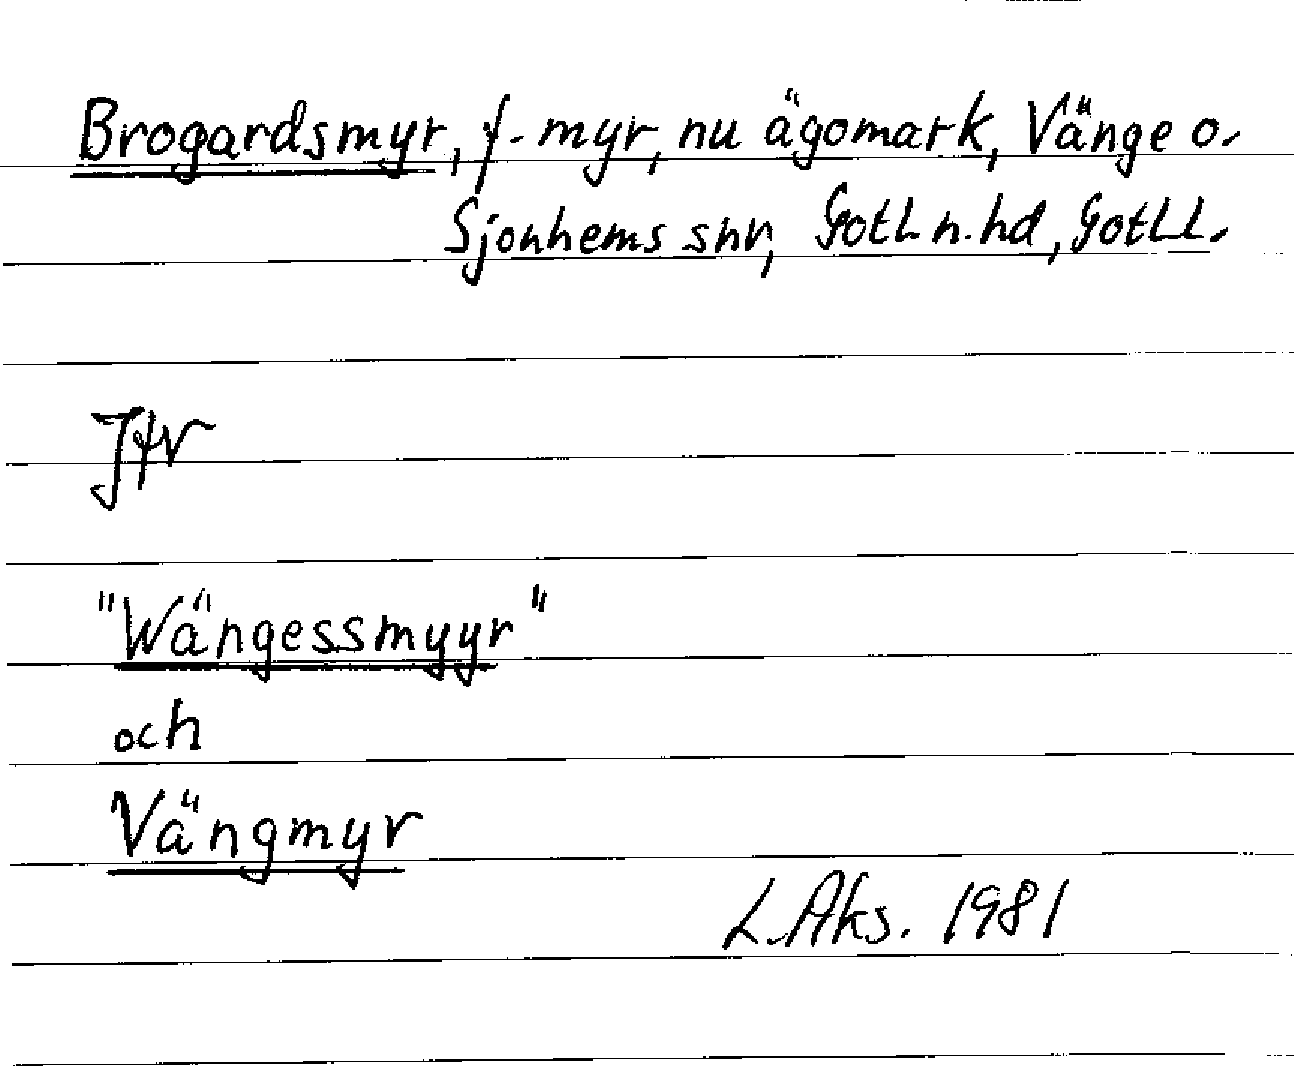 Brogardsmyr, f. myr, nu ägomark, Vänge o.
Sjonhems snr, Gotl. n. hd, Gotl. l.
Jfr
"Wängessmyyr"
och
Vängmyr
L. Aks. 1981